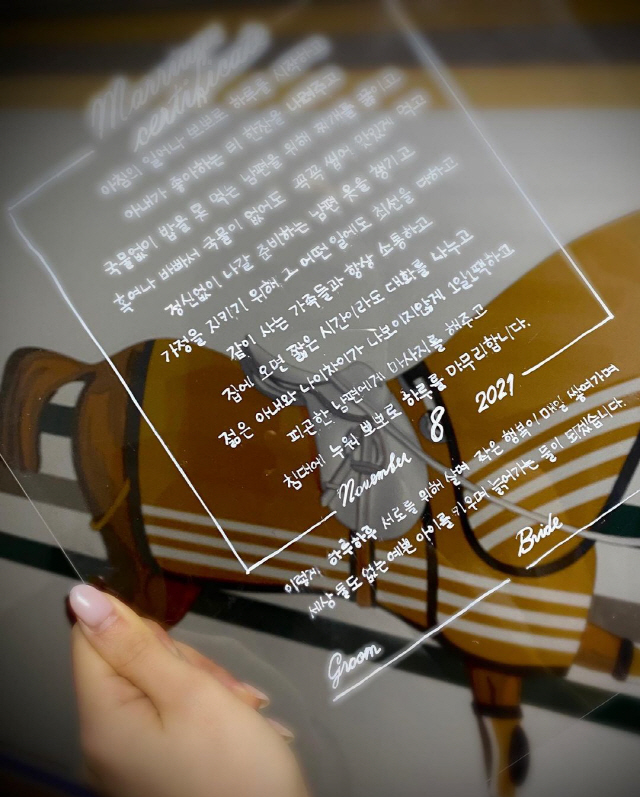 Marriage
certificate
아침의 일어나 뽀뽀로 하루를 시작하고
아내가 좋아하는 티 한잔은 내려주고
국물없이 밥을 못 먹는 남편을 위해 찌개를 끓이고
혹여나 바빠서 국물이 없어도 꼭꼭 씹어 맛있게 먹고
정신없이 나갈 준비하는 남편 옷을 챙기고
가정을 지키기 위해 그 어떤 일에도 최선을 다하고
같이 사는 가족들과 항상 소통하고
집에 오면 짧은 시간이라도 대화를 나누고
젊은 아내와 나이차이가 나보이지않게 1일1팩하고
피곤한 남편에게 마사지를 해주고
침대에 누워 뽀뽀로 하루를 마무리합니다.
November 8 2021
이렇게, 하루하루 서로를 위해 살며 작은 행복이 매일 쌓여가며
세상 둘도 없는 예쁜 아이를 키우며 늙어가는 둘이 되겠습니다.
Groom Bride